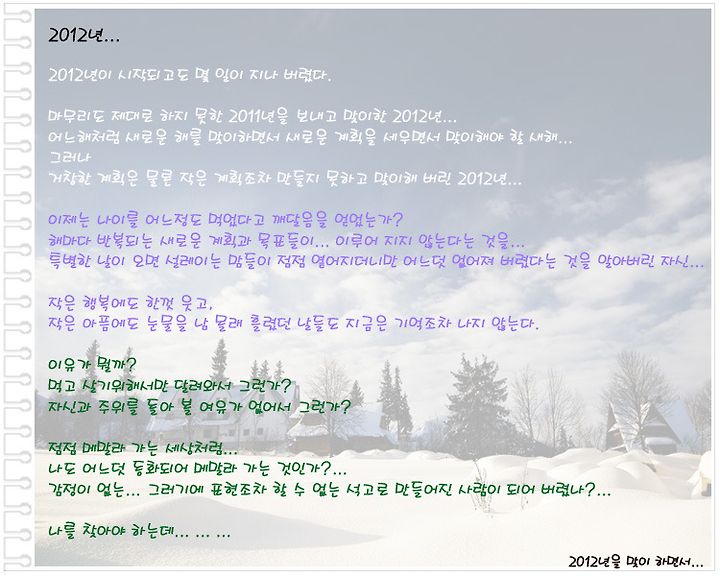 2012년...
2012년이 시작되고도 몇 일이 지나 버렸다.
마무리도 제대로 하지 못한 2011년을 보내고 맞이한 2012년...
어느해처럼 새로운 해를 맞이하면서 새로운 계획을 세우면서 맞이해야 할 새해...
그러나
거창한 계획은 물론 작은 계획조차 만들지 못하고 맞이해 버린 2012년...
이제는 나이를 어느정도 먹었다고 깨달음을 얻었는가?
해마다 반복되는 새로운 계획과 목표들이... 이루어 지지 않는다는 것을...
특별한 날이 오면 설레이는 맘들이 점점 옅어지더니만 어느덧 없어져 버렸다는 것을 알아버린 자신...
작은 행복에도 한껏 웃고,
작은 아픔에도 눈물을 남 몰래 흘렸던 날들도 지금은 기억조차 나지 않는다.
이유가 뭘까?
먹고 살기위해서만 달려와서 그런가?
자신과 주위를 돌아 볼 여유가 없어서 그런가?
점점 메말라 가는 세상처럼...
나도 어느덧 동화되어 메말라 가는 것인가?...
감정이 없는... 그러기에 표현조차 할 수 없는 석고로 만들어진 사람이 되어 버렸나?...
나를 찾아야 하는데... ... ...
2012년을 맞이 하면서...